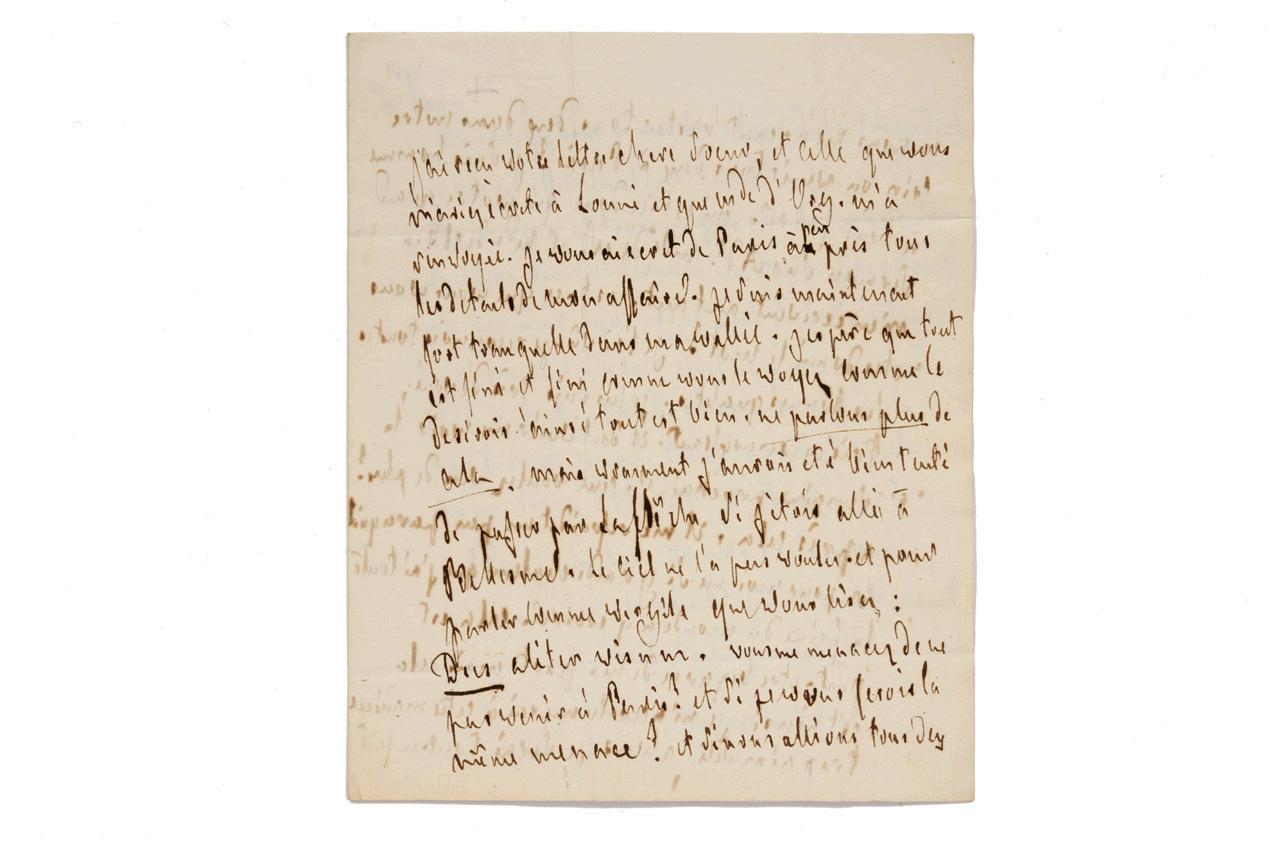 j'ai reçu votre lettre chere Soeur, et celle que vous
m'aviez écrite à et que mde d' m'a
renvoyée. je vous ai ecrit de Paris à peu près tous
les details de mon affaire. je suis maintenant
fort tranquille dans ma vallée. j'espère que tout
est fini et fini comme vous le voyez comme je le
desirois. ainsi tout est bien. ne parlons plus de
cela. mais vraiment j'aurois eté bien tenté
de passer par La flêche si j'étois allé à
Bellesme. le ciel ne l'a pas voulu. et pour
parler comme virgile que vous lisez :
Dees aliter visum. vous me menacez de ne
pas venir à Paris? et si je vous ferois la
même menace? et si nous allions tous deux